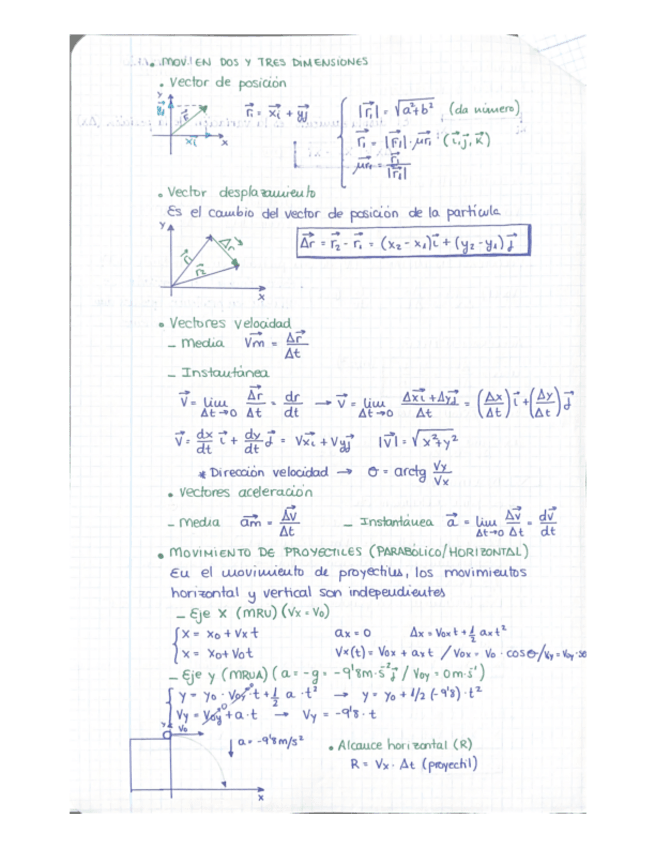 • MOV. EN DOS Y TRES DIMENSIONES
• Vector de posición
y
r⃗₁ = x⃗i + y⃗j
|r⃗₁| = √a²+b² (da número)
x⃗i
x
r⃗₁ = |r⃗₁| · μ⃗r₁ (i⃗, j⃗, k⃗)
μ⃗r₁ = r⃗₁/|r⃗₁|
• Vector desplazamiento
Es el cambio del vector de posición de la partícula
y
Δ⃗r = r⃗₂ - r⃗₁ = (x₂ - x₁)i⃗ + (y₂ - y₁)j⃗
Δ⃗r
r⃗₁
r⃗₂
x
• Vectores velocidad
- Media V⃗m = Δr⃗/Δt
- Instantánea
V⃗ = lim Δt→0 Δ⃗r/Δt = dr/dt → V⃗ = lim Δt→0 Δx⃗i + Δy⃗j/Δt = (Δx/Δt) i⃗ + (Δy/Δt) j⃗
V⃗ = dx/dt i⃗ + dy/dt j⃗ = Vx⃗i + Vy⃗j |V⃗| = √x²+y²
* Dirección velocidad → σ = arctg Vy/Vx
• Vectores aceleración
- Media a⃗m = Δv⃗/Δt - Instantánea a⃗ = lim Δt→0 Δv⃗/Δt = dv⃗/dt
• MOVIMIENTO DE PROYECTILES (PARABÓLICO/HORIZONTAL)
En el movimiento de proyectiles, los movimientos
horizontal y vertical son independientes
- Eje X (MRU) (Vx = V₀)
x = x₀ + Vx t ax = 0 Δx = V₀x t + 1/2 ax t²
x = x₀ + V₀t Vx(t) = V₀x + ax t / V₀x = V₀ · cos θ / V₀y = V₀y
- Eje y (MRUA) (a = -g = -9'8 m · s⁻² j⃗ / V₀y = 0 m · s⁻¹)
y = y₀ · V₀y⁰ · t + 1/2 a · t² → y = y₀ + 1/2 (-9'8) · t²
Vy = V₀y⁰ + a · t → Vy = -9'8 · t
y
V₀
a = -9'8 m/s²
• Alcance horizontal (R)
R = Vx · Δt (proyectil)
x